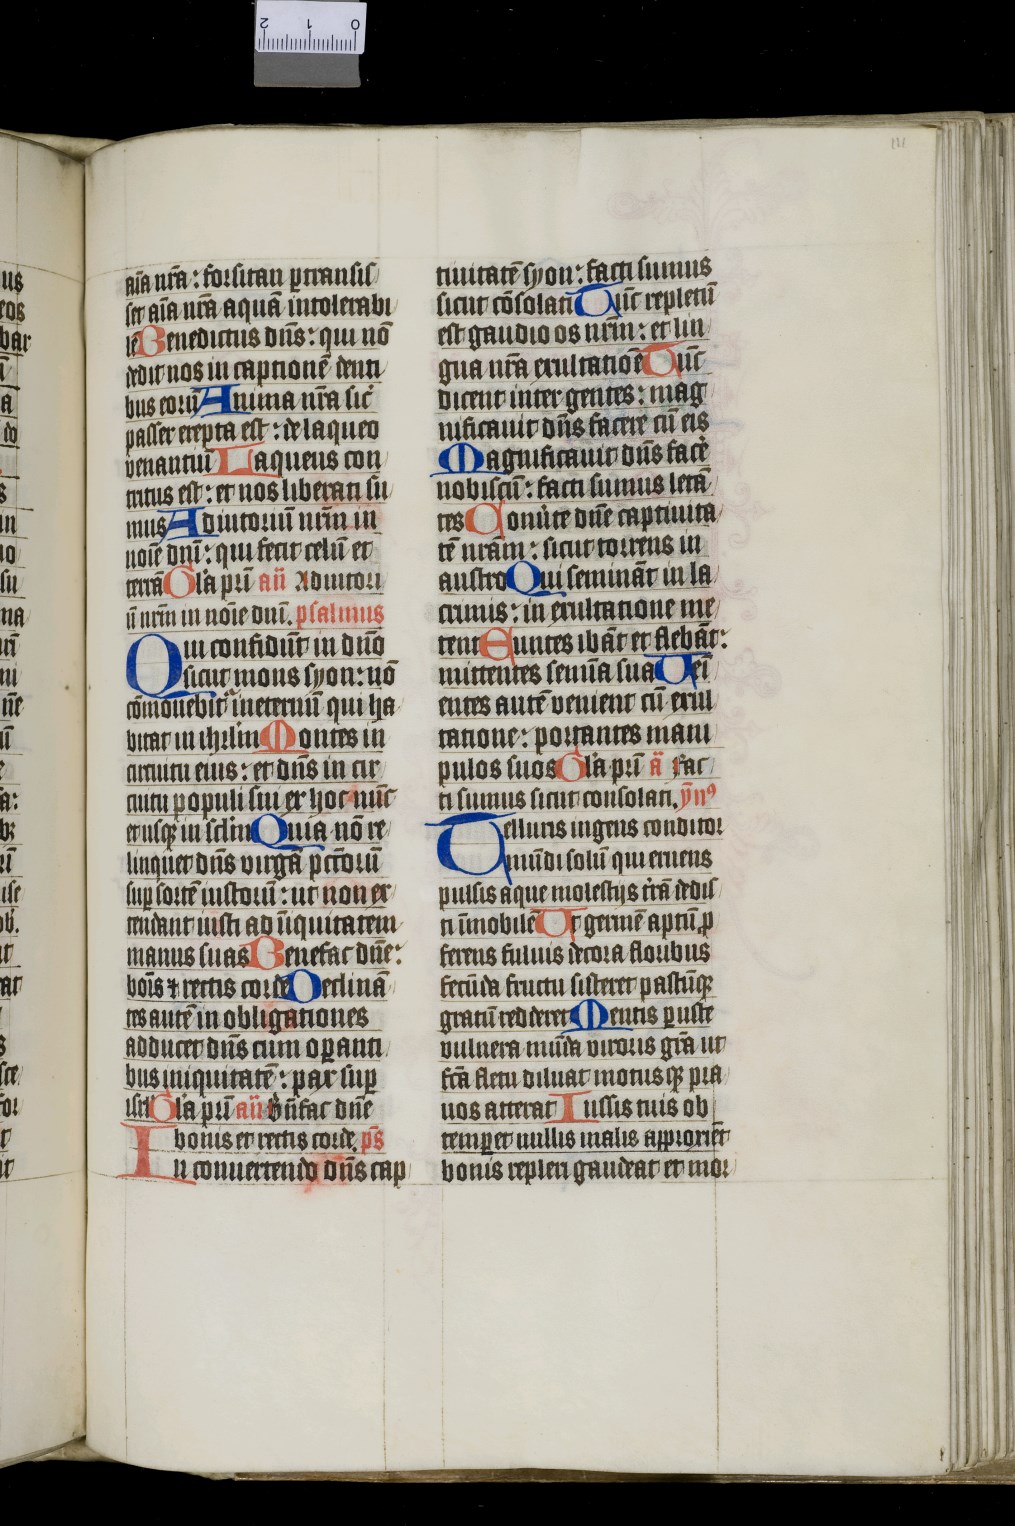 aīa nr̄a : forsitan ꝑtransis
set aīa nr̄a aquā intolerabi
lē Benedictus dn̄s : qui nō
dedit nos in captionē denti
bus eorū Anima nr̄a sic̄
passer erepta est : de laqueo
venantiū Laqueus con
tritus est : et nos liberati su
mus Adiutoriū nr̄m in
noīe dn̄i : qui fecit celū et
terrā Gl'a pr̄i an̄ Adiutori
ū nr̄m in noīe dn̄i. psalmus
Qui confidūt in dn̄o
sicut mons syon : nō
cōmouebit᷑ ineternū qui ha
bitat in ihrl̄m Montes in
circuitu eius : et dn̄s in cir
cuitu populi sui ex hoc nūc
et usqꝫ in sc̄lm Quia nō re
linquet dn̄s virgā pctōrū
suꝑ sortē iustorū : ut non ex
tendant iusti ad īiquitatem
manus suas Benefac dn̄e :
bonīs ⁊ rectis corde Declinā
tes autē in obligationes
adducet dn̄s cum oꝑanti
bus iniquitatē : pax suꝑ
isrl̄ Gl'a pr̄i an̄ Bn̄fac dn̄e
bonis et rectis corde. ps̄
In conuertendo dn̄s cap
tiuitatē syon : facti sumus
sicut cōsolati Tūc repletū
est gaudio os nr̄m : et lin
gua nr̄a exultatiōe Tūc
dicent inter gentes : mag
nificauit dn̄s facere cū eis
Magnificauit dn̄s facē
nobiscū : facti sumus letā
tes Conūte dn̄e captiuita
tē nr̄am : sicut torrens in
austro Qui semināt in la
crimis : in exultatione me
tent Euntes ibāt et flebāt :
mittentes semīa sua Veī
entes autē venient cū exul
tatione : portantes mani
pulos suos Gl'a pr̄i ā Fac
ti sumus sicut consolati. ẏn̄⁹
Telluris ingens conditor
mūdi solū qui eruens
pulsis aque molestijs tr̄ā dedis
ti īmobilē Ut germē aptū ꝓ
ferens fuluis decora floribus
fecūda fructu sisteret pastūqꝫ
gratū redderet Mentis ꝑuste
vulnera mūda viroris gr̄a ut
fc̄a fletu diluat motusqꝫ pra
uos atterat Iussis tuis ob
temꝑet nullis malis approxiēt
bonis repleri gaudeat et mor